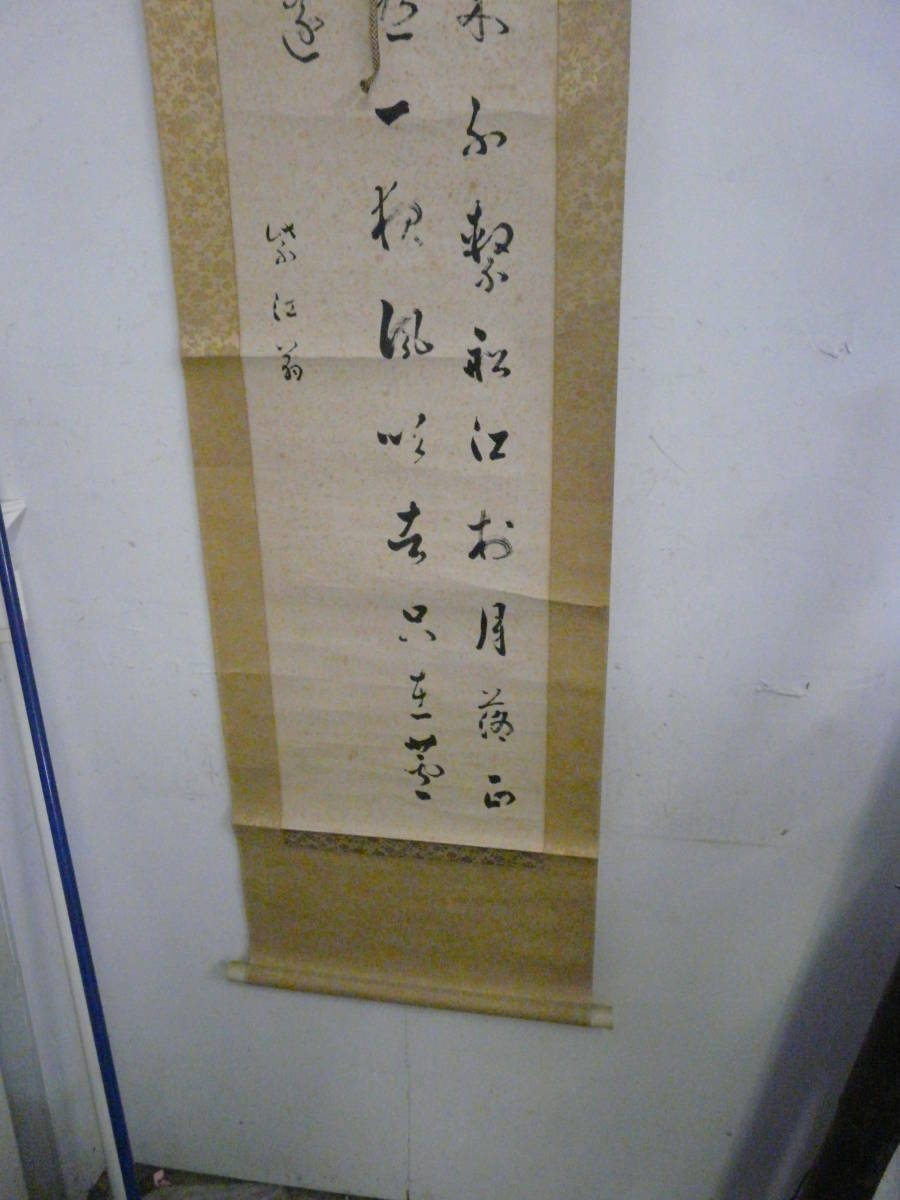 不繫船江村月落正
一夜風吹去只在蘆
邊
紫江翁